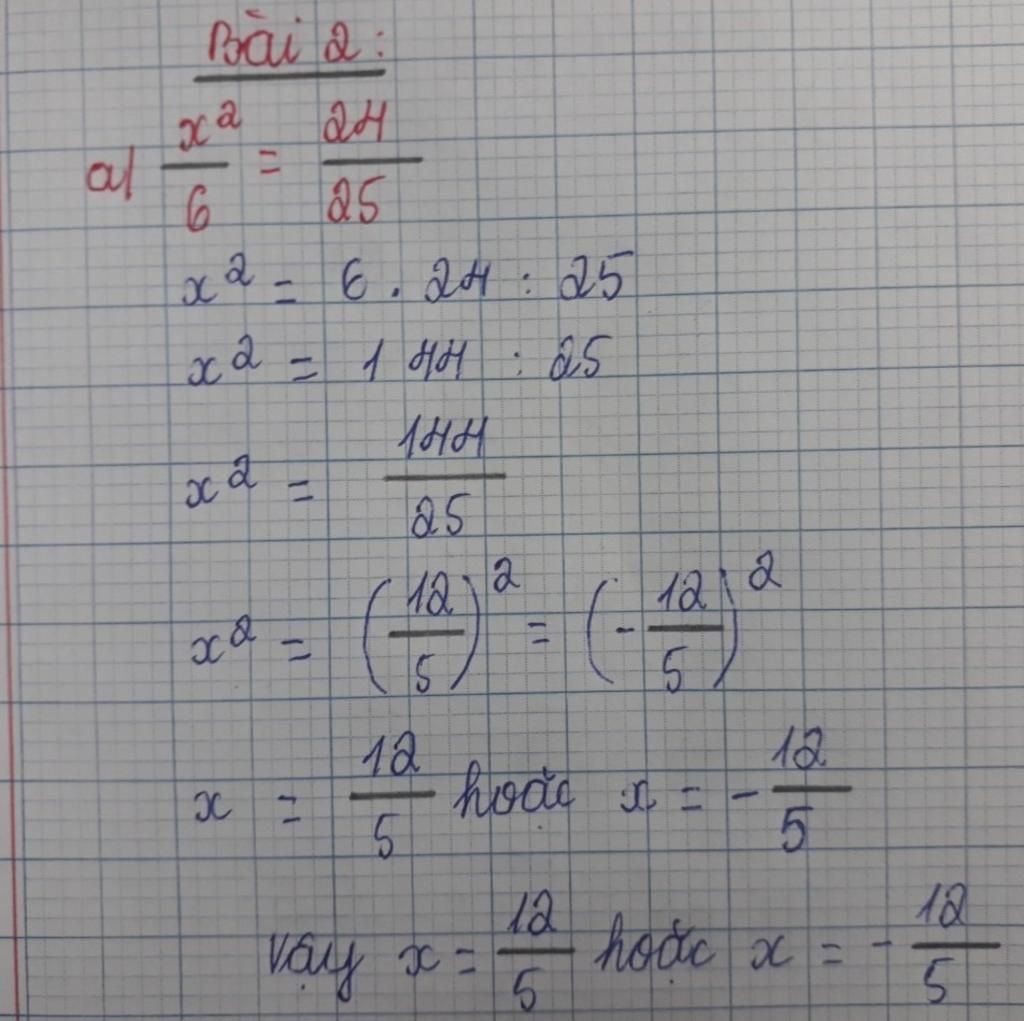 Bài 2:
a) x²/6 = 24/25
x² = 6 . 24 : 25
x² = 144 : 25
x² = 144/25
x² = (12/5)² = (-12/5)²
x = 12/5 hoặc x = -12/5
vậy x = 12/5 hoặc x = -12/5